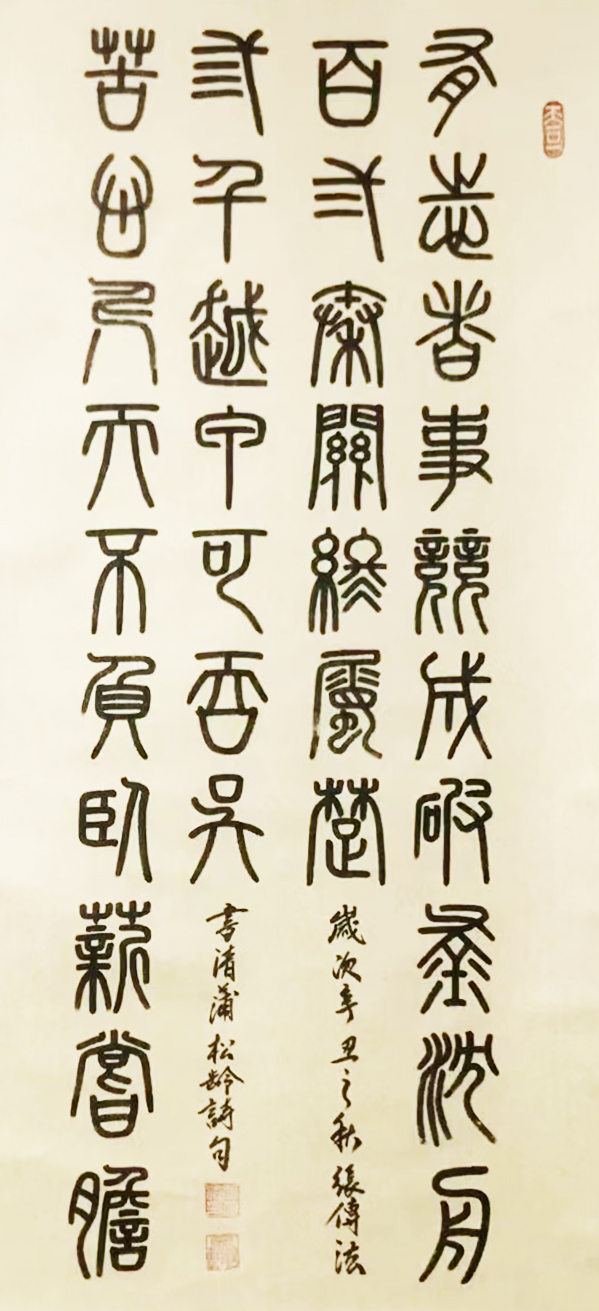 有志者事競成破釜沈舟
百弍秦關終屬楚
苦心人天不負臥薪嘗膽
弎千越甲可吞吳
歲次辛丑之秋張傳法
書清蒲松齡詩句